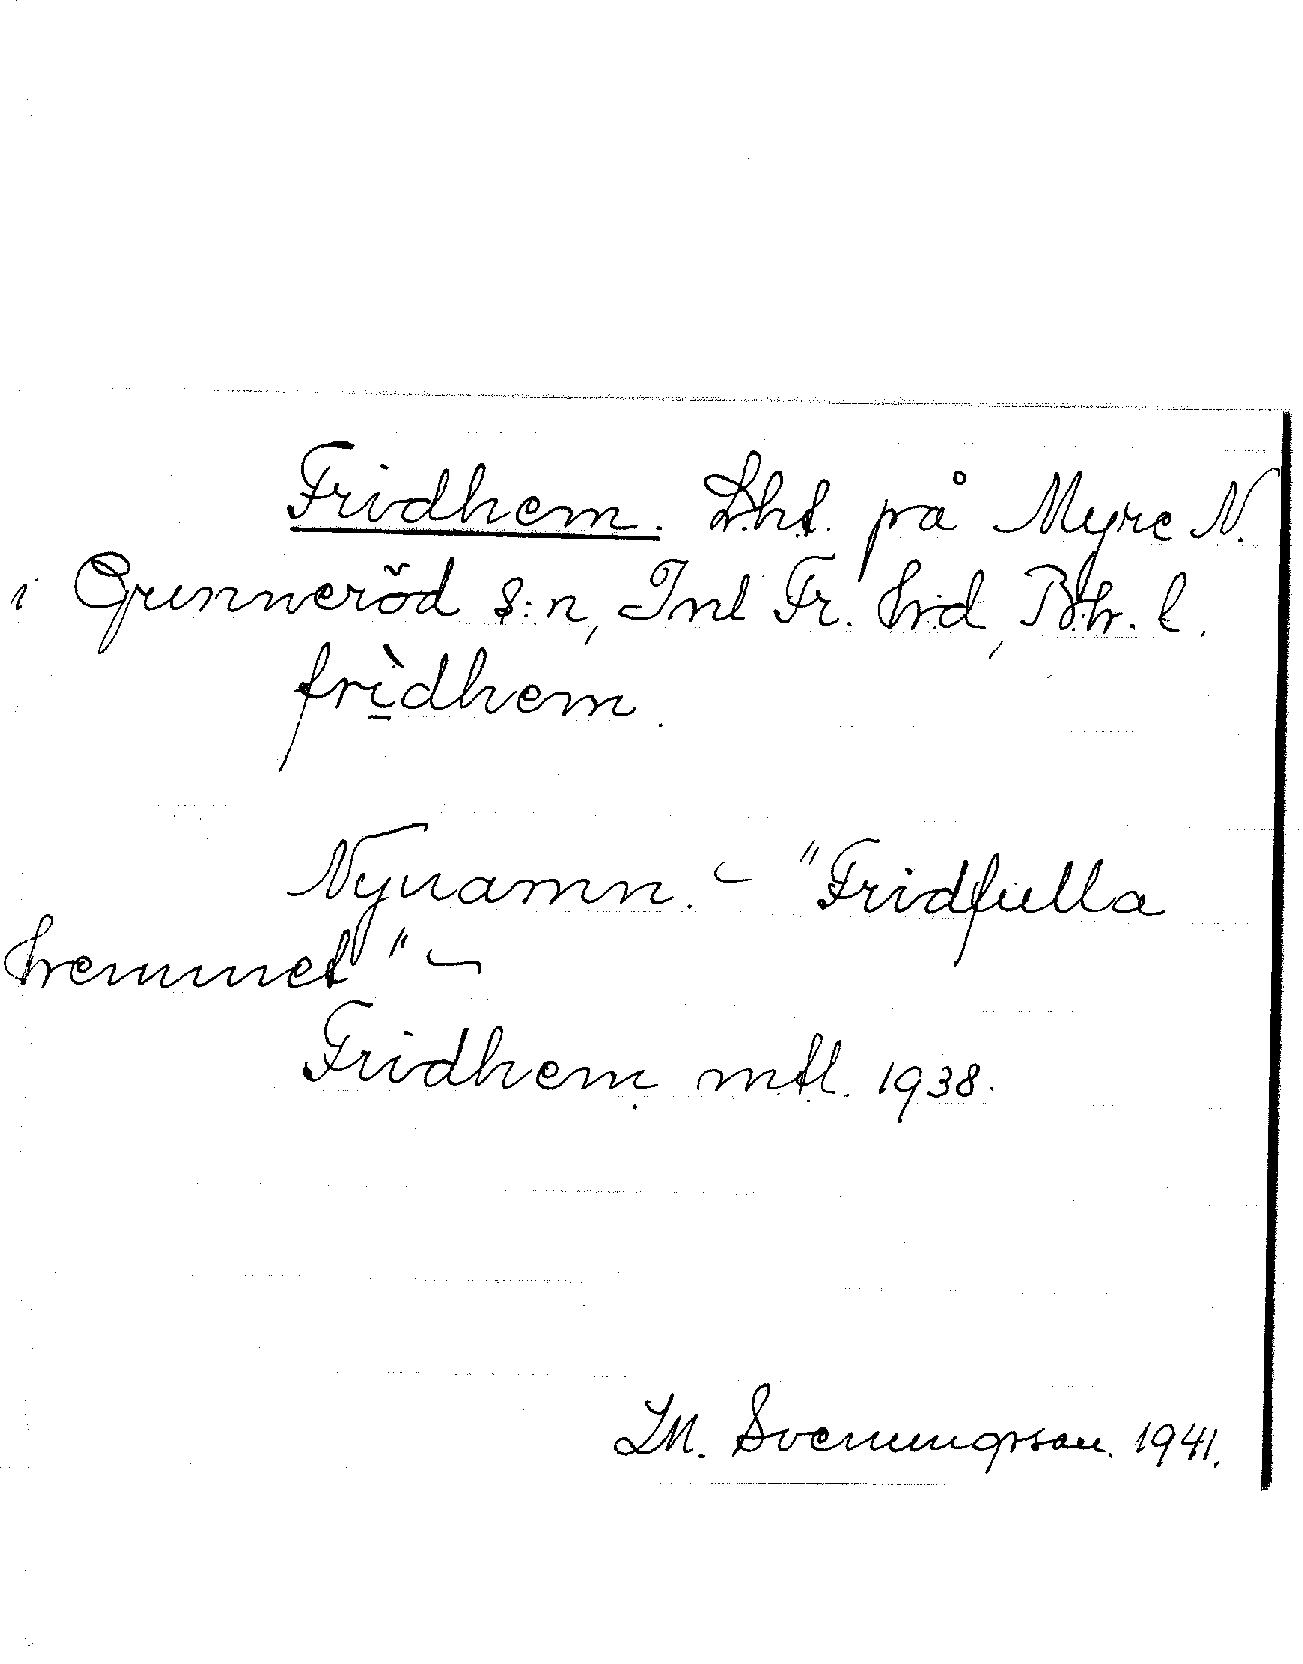 Fridhem. Lht. på Myre N.
i Grinneröd s:n, Inl Fr. hrd, Boh. l.
frìdhem.
Nynamn. – "Fridfulla
hemmet" –
Fridhem mtl. 1938.
LM. Svenungsson. 1941.